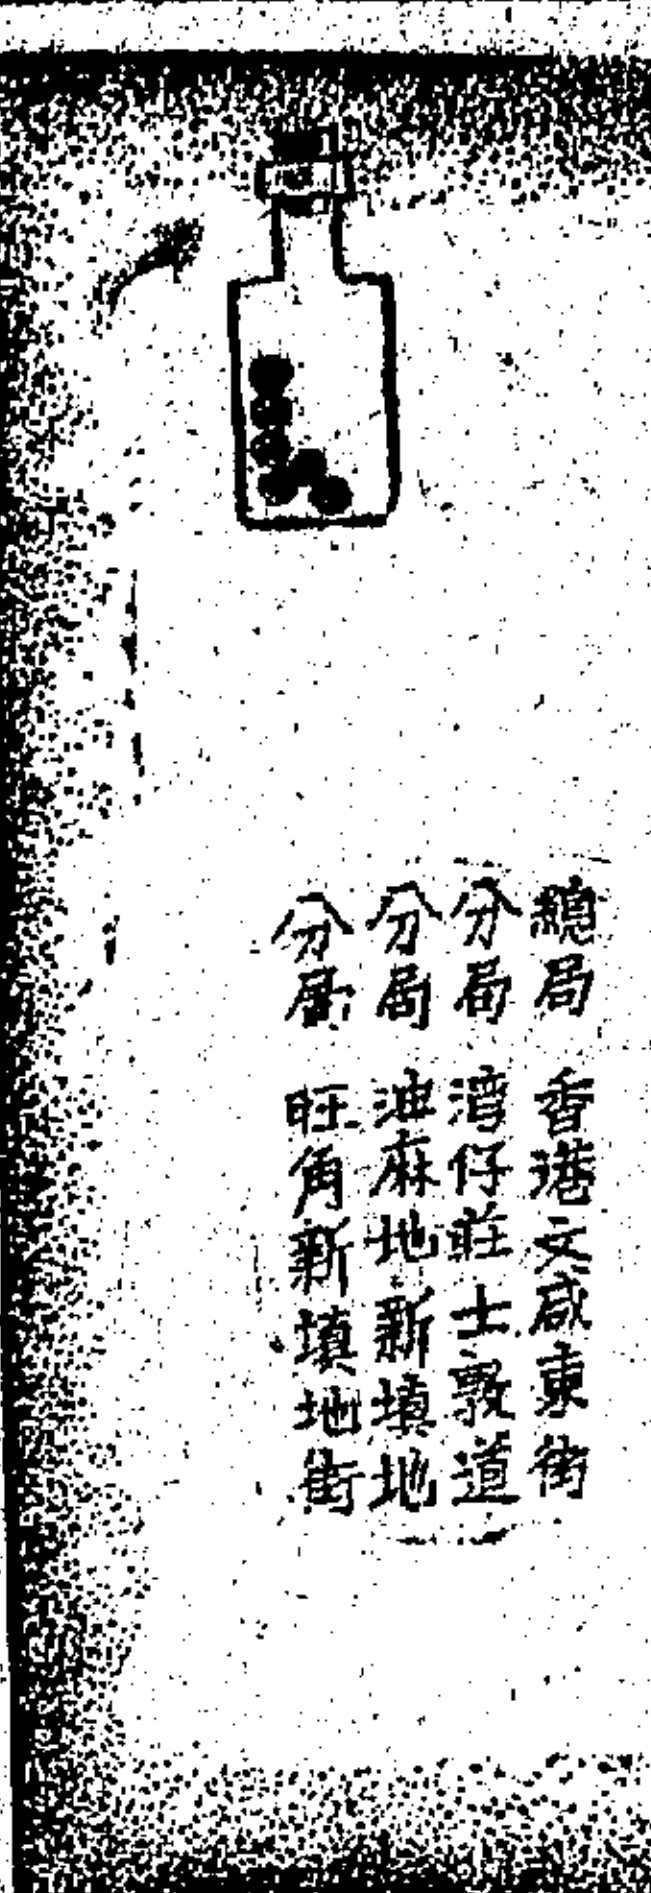 總局 香港文咸東街
分局 湾仔莊士敦道
分局 油麻地新填地
分局 旺角新填地街